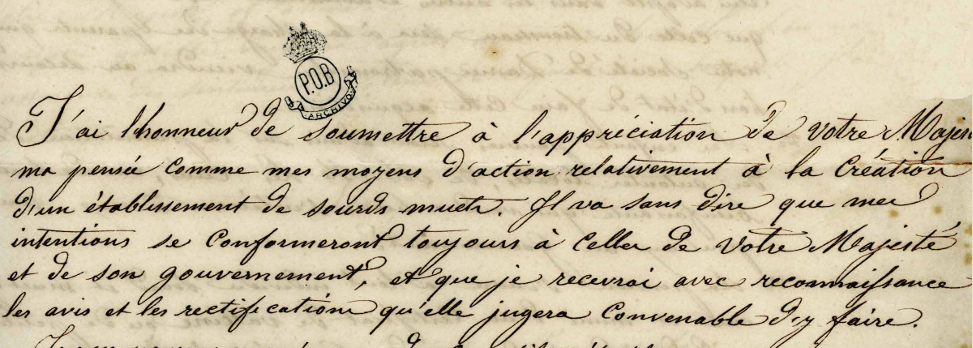 P.O.B
ARCHIVO
J'ai l'honneur de soumettre à l'appréciation de Votre Majes
ma pensée comme mes moyens d'action relativement à la Création
d'un établissement de sourds muets. Il va sans dire que mes
intentions se conformeront toujours à celles de Votre Majesté
et de son gouvernement, et que je recevrai avec reconnaissance
les avis et les rectifications qu'elle jugera convenable d'y faire.